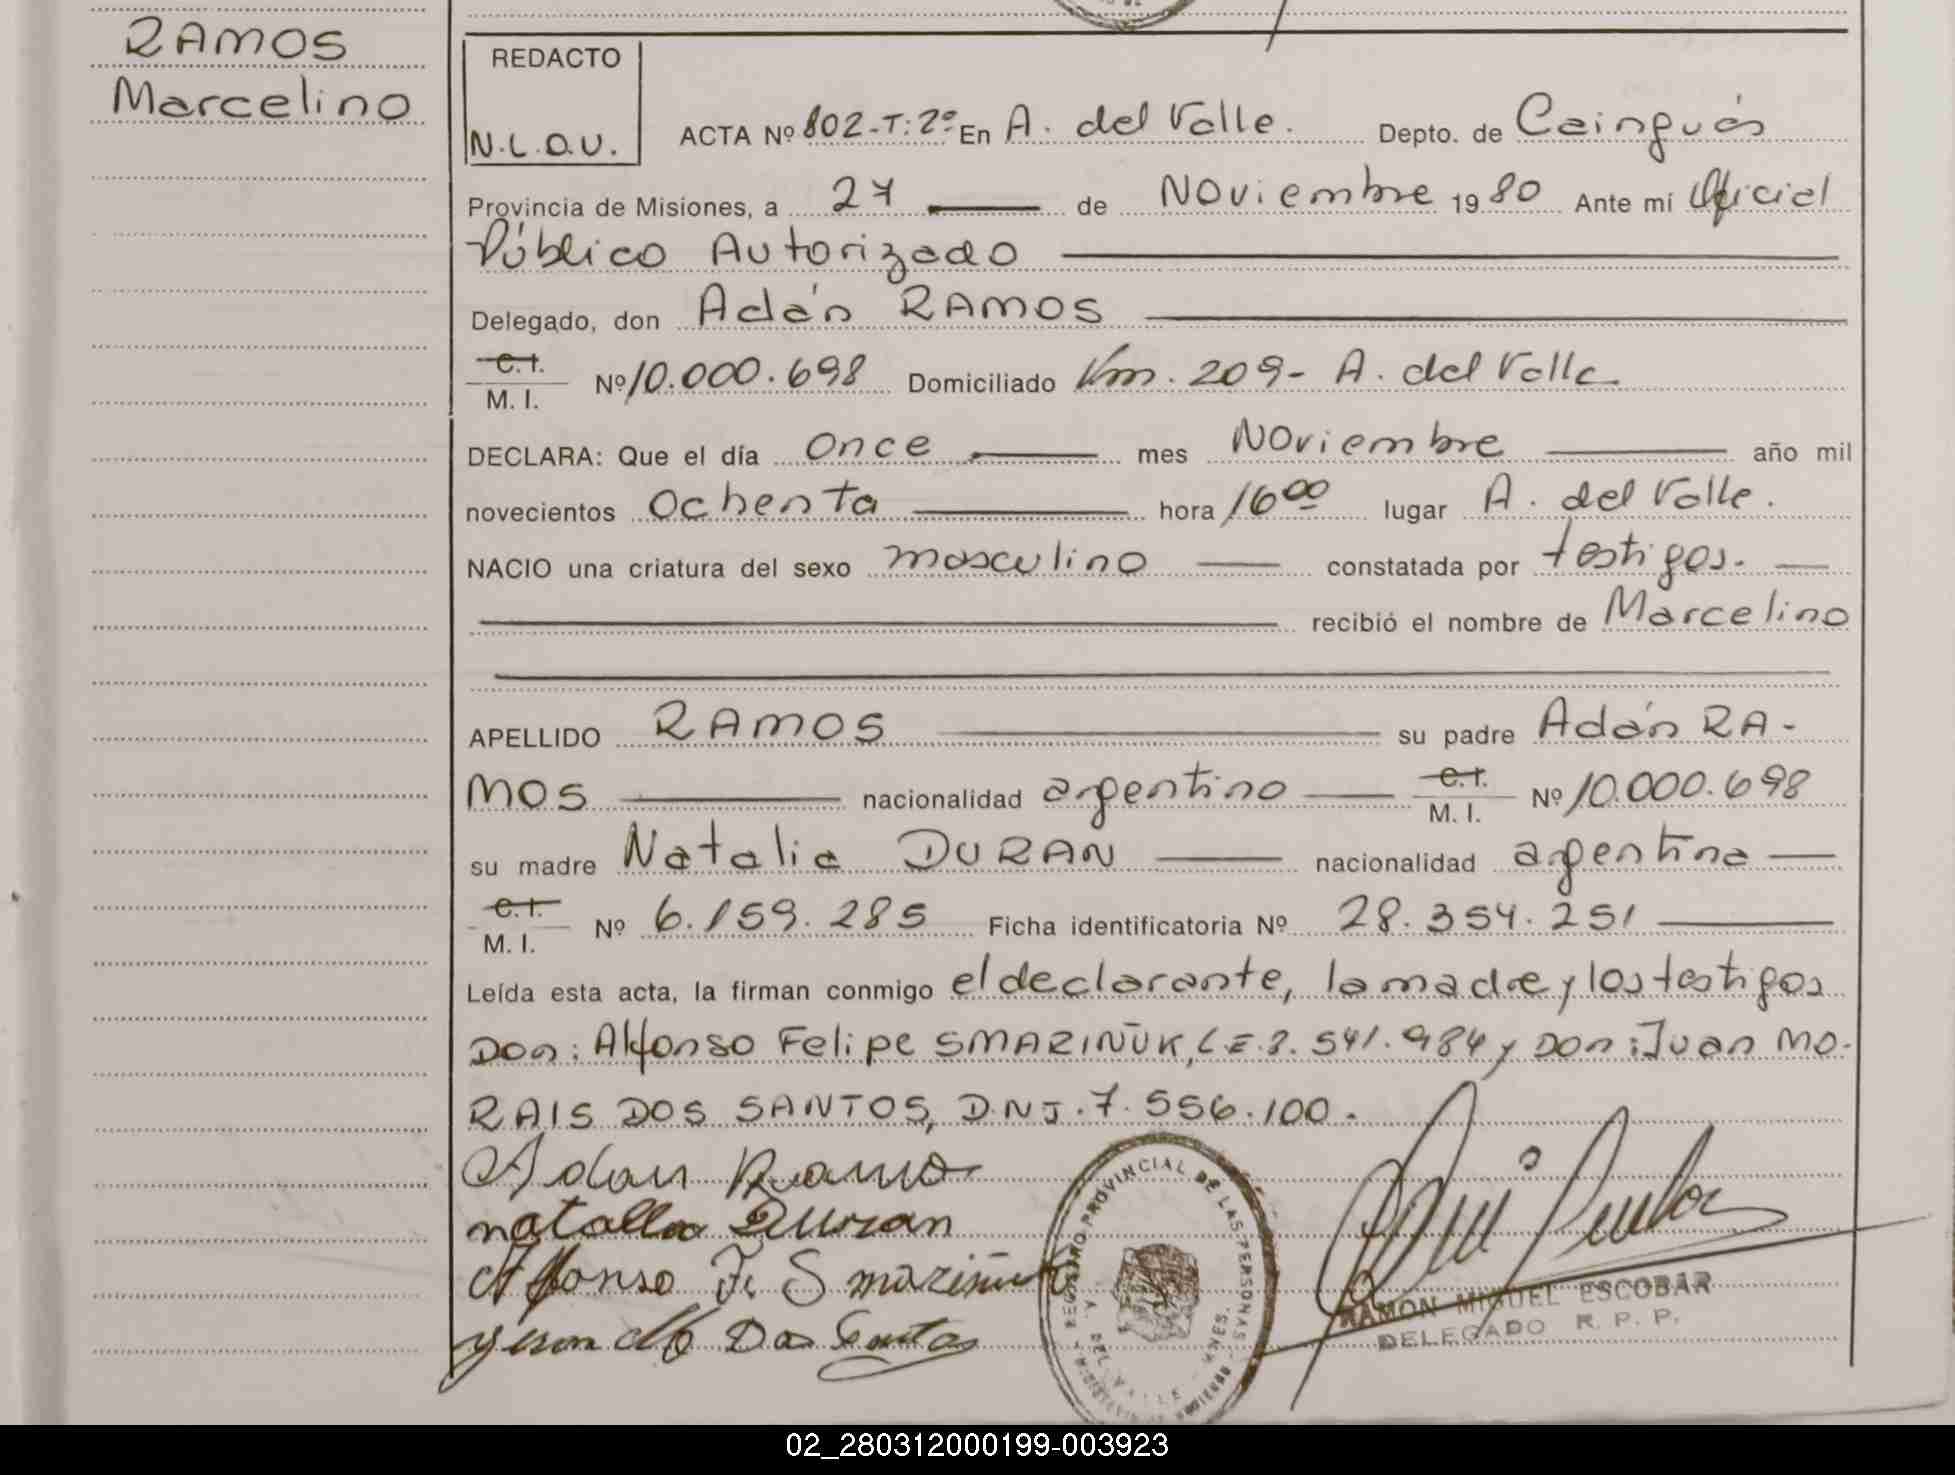 RAMOS
Marcelino
REDACTO
N.L.O.V.
ACTA Nº 802-T:2º En A. del Valle. Depto. de Cainguás
Provincia de Misiones, a 27 de Noviembre 1980 Ante mí Oficial
Público Autorizado
Delegado, don Adán RAMOS
C.I. M. I. Nº 10.000.698 Domiciliado Km. 209- A. del Valle
DECLARA: Que el día once mes Noviembre año mil
novecientos ochenta hora 16 00 lugar A. del Valle.
NACIO una criatura del sexo masculino constatada por testigos.
recibió el nombre de Marcelino
APELLIDO RAMOS su padre Adán RA-
MOS nacionalidad argentino C.I. M. I. Nº 10.000.698
su madre Natalia DURAN nacionalidad argentina
C.I. M. I. Nº 6.159.285 Ficha identificatoria Nº 28.354.251
Leída esta acta, la firman conmigo el declarante, la madre y los testigos
Don: Alfonso Felipe SMAZIÑUK, L.E.8.541.984 y Don: Juan MO-
RAIS DOS SANTOS, D.N.I. 7.556.100.
Adan Ramo
natalia Duran
Alfonso F. Smaziñuk
Dos Santos
REGISTRO PROVINCIAL DE LAS PERSONAS
A. DEL VALLE - MNES.
RAMON MIGUEL ESCOBAR
DELEGADO R. P. P.
02_280312000199-003923